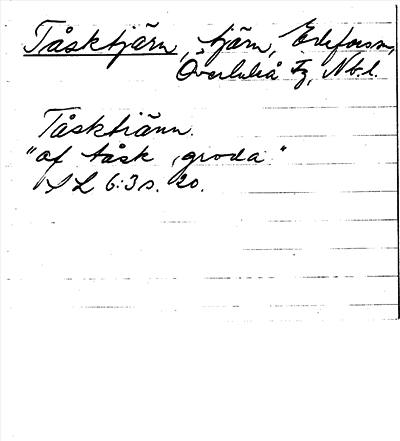 Tåsktjärn, tjärn, Edefors sn,
Överluleå tg, Nb.l.
Tåsktiänn.
"af tåsk, groda"
SL 6:3 s. 20.